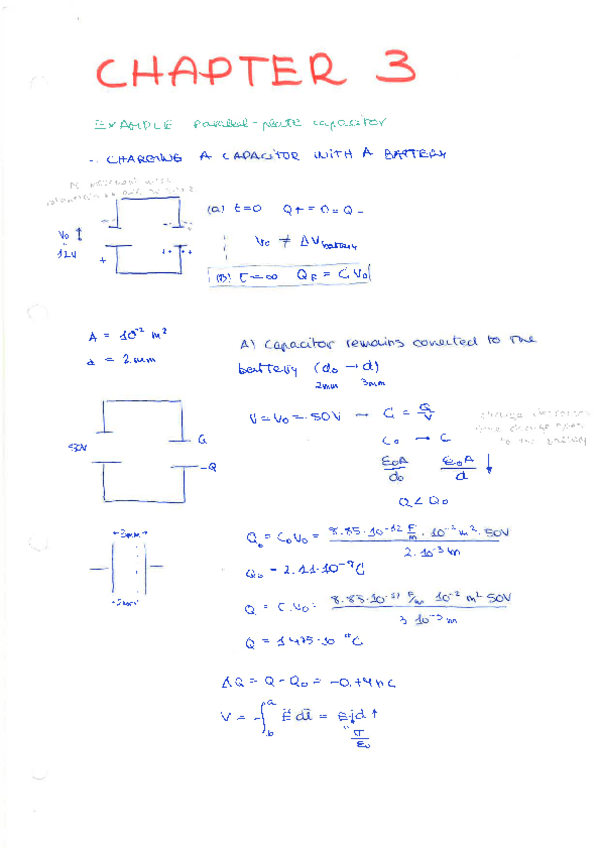 CHAPTER 3
EXAMPLE Parallel-plate capacitor
-. CHARGING A CAPACITOR WITH A BATTERY
(a) t=0 Q+ = 0 = Q-
V0 ↑
12V
V0 ≠ ΔVbattery
(B) t=∞ QF = C V0
A = 10^-2 m²
d = 2mm
A) Capacitor remains conected to the
battery (d0 → d)
2mm 3mm
V = V0 = 50V → C = Q/V
50V
Q
-Q
C0 → C
ε0A/d0 ε0A/d ↓
Q < Q0
←3mm→
Q0 = C0V0 = 8.85·10^-12 F/m · 10^-2 m² · 50V / 2·10^-3 m
Q0 = 2.21·10^-9 C
Q = C·V0 = 8.85·10^-12 F/m 10^-2 m² 50V / 3 10^-3 m
ΔQ = Q - Q0 = -0.74nC
V = -∫_b^a E⃗ dl⃗ = E·d ↑
σ/ε0